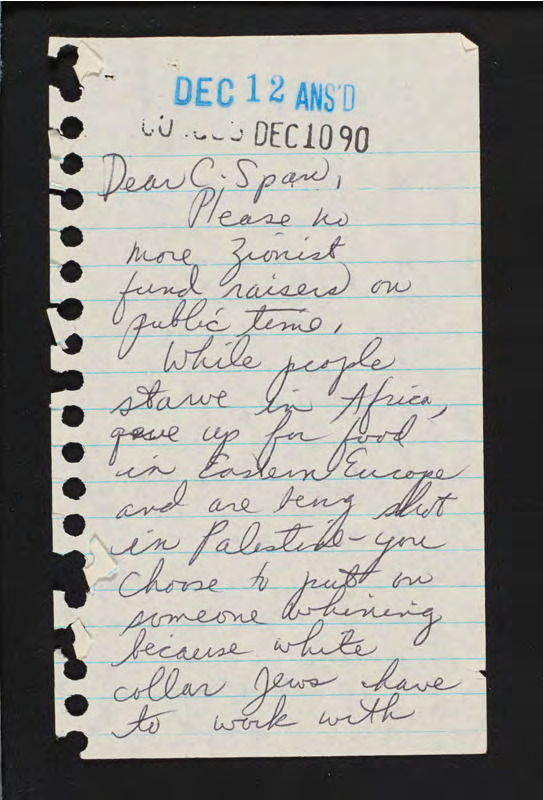 DEC 12 ANS'D
DEC 10 90
Dear C-Span,
Please no
more Zionist
fund raisers on
public time.
While people
starve in Africa,
queue up for food
in Eastern Europe
and are being shot
in Palestine - you
choose to put on
someone whining
because white
collar Jews have
to work with